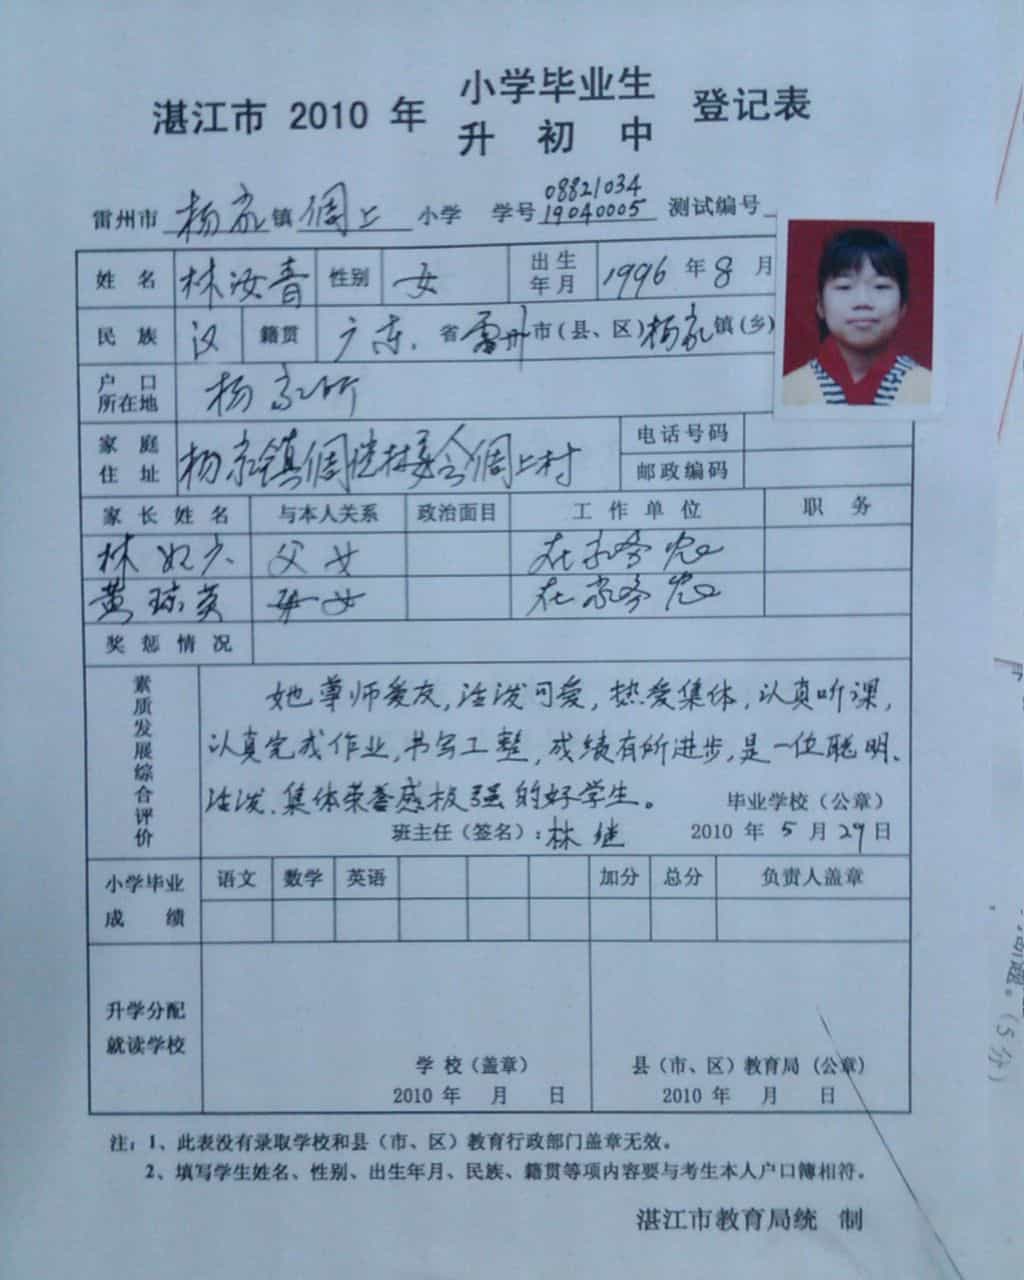 湛江市 2010 年 小学毕业生 登记表
升 初 中
08821034
雷州市 杨家 镇 倜上 小学 学号 19040005 测试编号
姓 名 林汝音 性别 女 出生年月 1996 年 8 月
民 族 汉 籍贯 广东 省 雷州 市(县、区) 杨家 镇(乡)
户 口 所在地 杨家所
家 庭 住 址 杨家镇倜 村委会倜上村 电话号码
邮政编码
家 长 姓 名 与本人关系 政治面目 工 作 单 位 职 务
林 父女 在家务农
黄琼英 母女 在家务农
奖 惩 情 况
素质发展综合评价
她尊师爱友,活泼可爱,热爱集体,认真听课,
认真完成作业,书写工整,成绩有所进步,是一位聪明、
活泼、集体荣誉感极强的好学生。
毕业学校(公章)
班主任(签名): 林继 2010 年 5 月 29 日
小学毕业 语文 数学 英语 加分 总分 负责人盖章
成 绩
升学分配
就读学校
学 校(盖章) 县(市、区)教育局(公章)
2010 年 月 日 2010 年 月 日
注: 1、此表没有录取学校和县(市、区)教育行政部门盖章无效。
2、填写学生姓名、性别、出生年月、民族、籍贯等项内容要与考生本人户口簿相符。
湛江市教育局统 制
题。(5分)